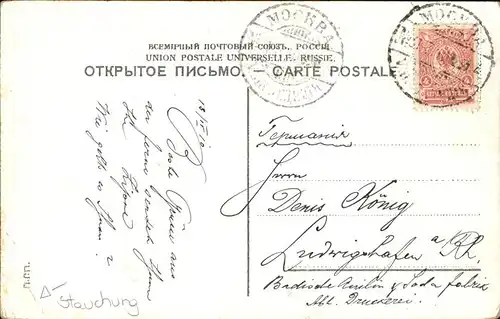 МОСКВА
МОСКВА
ВСЕМІРНЫЙ ПОЧТОВЫЙ СОЮЗЪ. РОССІЯ
UNION POSTALE UNIVERSELLE. RUSSIE.
ОТКРЫТОЕ ПИСЬМО. — CARTE POSTALE
Германія
Herrn
Denis König
Ludwigshafen a/Rh.
Badische Anilin & Soda fabrik
Abt. Druckerei.
Beste Grüsse aus
der Ferne sendet Ihnen
Ihr
Wie geht es Ihnen?
Stauchung